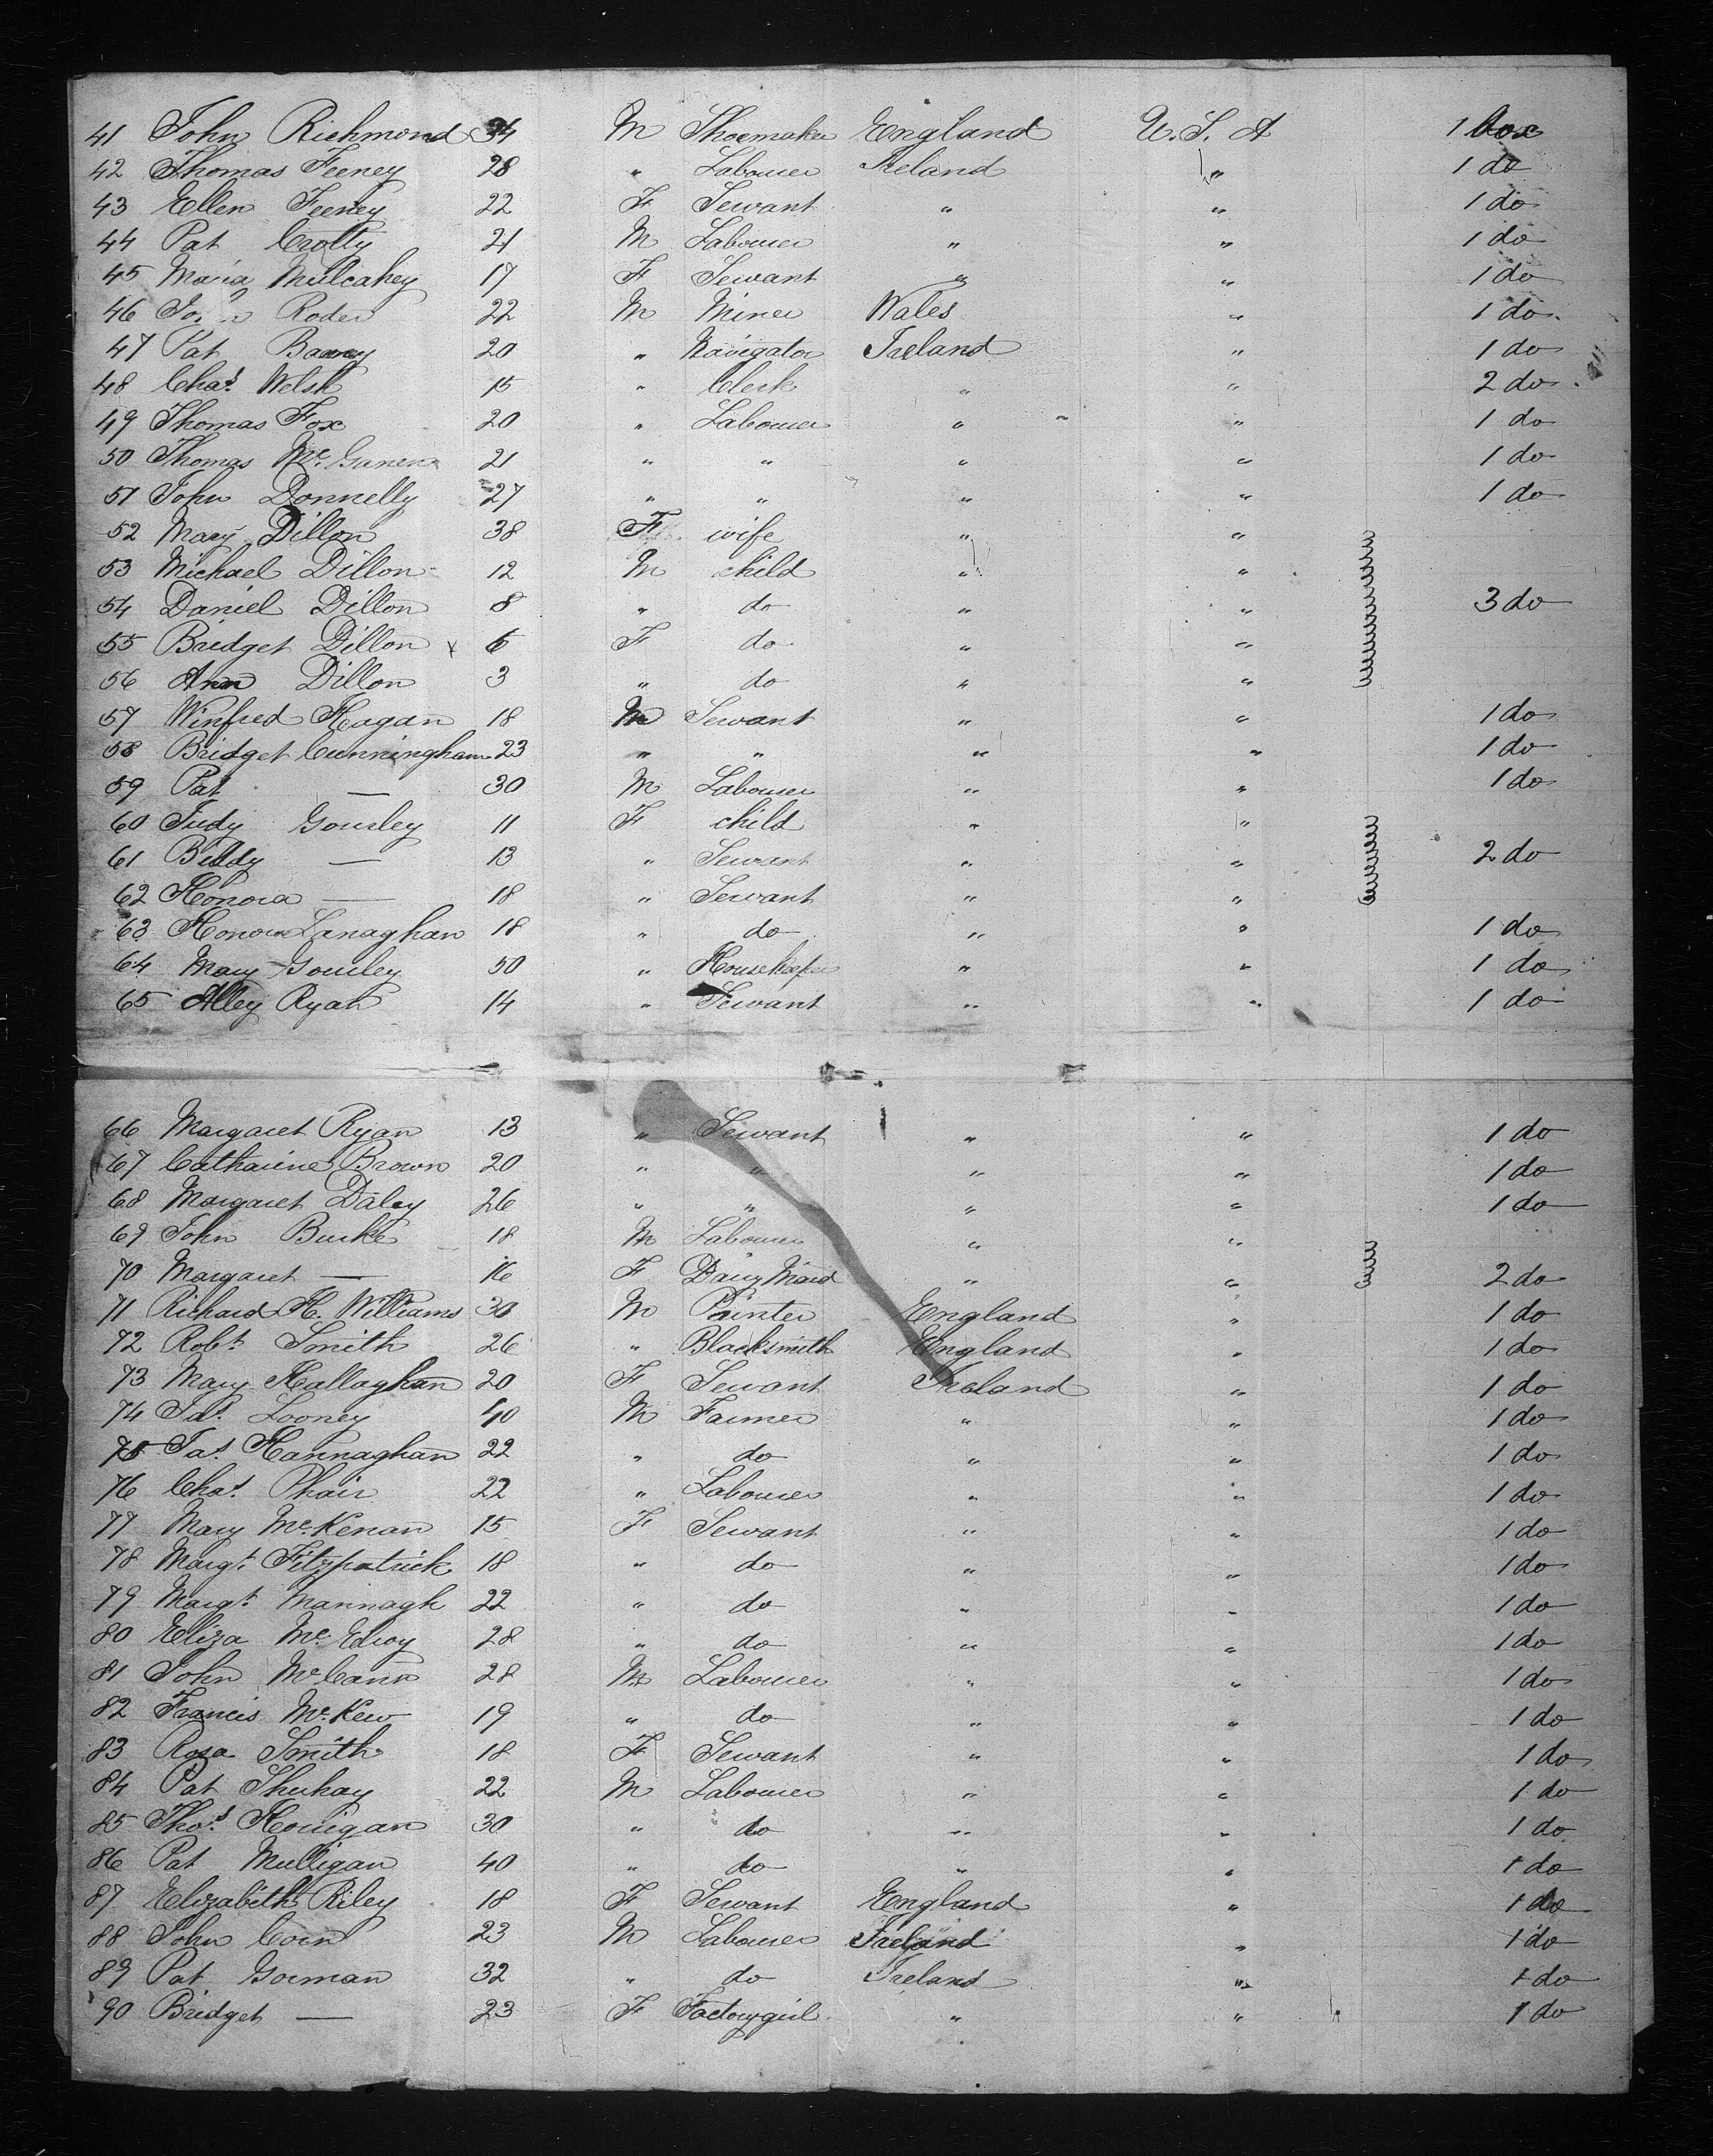 41 John Richmond 34 M Shoemaker England U.S.A 1 box
42 Thomas Feeney 28 " Labourer Ireland " 1 do
43 Ellen Feeney 22 F Servant " " 1 do
44 Pat Crotty 21 M Labourer " " 1 do
45 Maria Mulcahey 17 F Servant " " 1 do
46 Roder 22 M Miner Wales " 1 do
47 Pat 20 " Navigator Ireland " 1 do
48 Chas. Welsh 15 " Clerk " " 2 do
49 Thomas Fox 20 " Labourer " " 1 do
50 Thomas Mc. 21 " " " " 1 do
51 John Donnelly 27 " " " " 1 do
52 Mary Dillon 38 F wife " "
53 Michael Dillon 12 M child " "
54 Daniel Dillon 8 " do " " 3 do
55 Bridget Dillon x 6 F do " "
56 Ann Dillon 3 " do " "
57 Winfred Hagan 18 M Servant " " 1 do
58 Bridget Cunningham 23 " " " " 1 do
59 Pat — 30 M Labourer " " 1 do
60 Judy Gourley 11 F child " "
61 Biddy — 13 " Servant " " 2 do
62 Honora — 18 " Servant " "
63 Honora Lanaghan 18 " do " " 1 do
64 Mary Gourley 50 " Housekeeper " " 1 do
65 Alley Ryan 14 " Servant " " 1 do
66 Margaret Ryan 13 " Servant " " 1 do
67 Catharine Brown 20 " " " " 1 do
68 Margaret Daley 26 " " " " 1 do
69 John Burke 18 M Labourer " "
70 Margaret — 16 F Dairy Maid " " 2 do
71 Richard H. Williams 30 M England " 1 do
72 Robt. Smith 26 " Blacksmith England " 1 do
73 Mary Kallaghan 20 F Servant Ireland " 1 do
74 Jas. Looney 40 M Farmer " " 1 do
75 Jas. Hannaghan 22 " do " " 1 do
76 Chas. Phair 22 " Labourer " " 1 do
77 Mary Mc.Kenan 15 F Servant " " 1 do
78 Margt. Fitzpatrick 18 " do " " 1 do
79 Margt. Mannagh 22 " do " " 1 do
80 Eliza Mc.Elroy 28 " do " " 1 do
81 John McCann 28 M Labourer " " 1 do
82 Francis Mc.Kew 19 " do " " 1 do
83 Rosa Smith 18 F Servant " " 1 do
84 Pat Shuhay 22 M Labourer " " 1 do
85 Thos. Horrigan 30 " do " " 1 do
86 Pat Mulligan 40 " do " " 1 do
87 Elizabeth Riley 18 F Servant England " 1 do
88 John Corn 23 M Labourer Ireland " 1 do
89 Pat Gorman 32 " do Ireland " 1 do
90 Bridget — 23 F Factorygirl " " 1 do